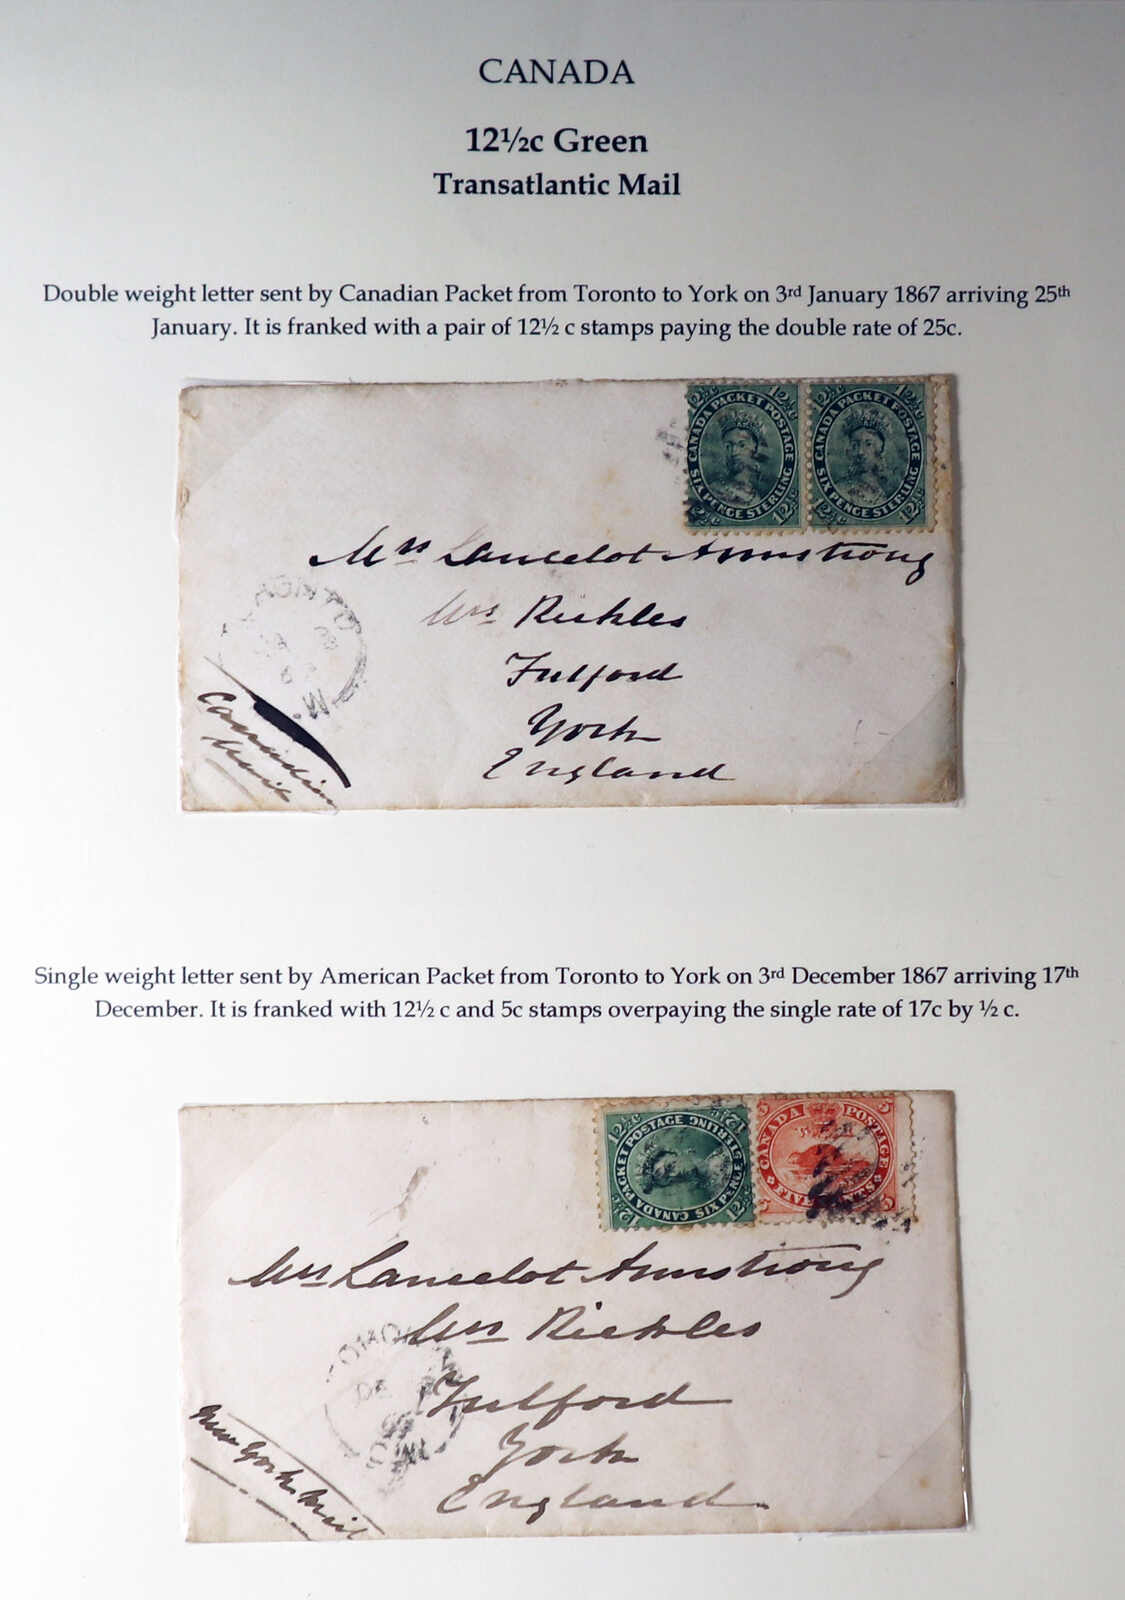 CANADA
12½c Green
Transatlantic Mail
Double weight letter sent by Canadian Packet from Toronto to York on 3rd January 1867 arriving 25th
January. It is franked with a pair of 12½ c stamps paying the double rate of 25c.
12½c 12½c
CANADA PACKET POSTAGE
SIX PENCE STERLING
12½c 12½c
12½c 12½c
CANADA PACKET POSTAGE
SIX PENCE STERLING
12½c 12½c
Mrs Lancelot Armstrong
Mrs Rickles
Fulford
York
England
Canadian
Mail
Single weight letter sent by American Packet from Toronto to York on 3rd December 1867 arriving 17th
December. It is franked with 12½ c and 5c stamps overpaying the single rate of 17c by ½ c.
12½c 12½c
CANADA PACKET POSTAGE
SIX PENCE STERLING
12½c 12½c
5 5
CANADA POSTAGE
FIVE CENTS
5 5
Mrs Lancelot Armstrong
Mrs Rickles
Fulford
York
England
New York Mail